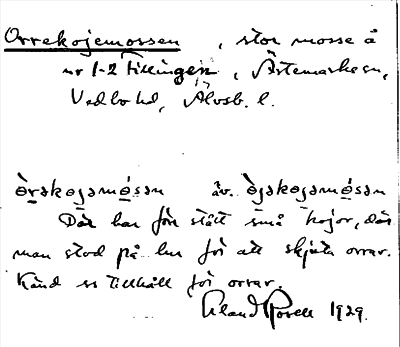 Orrekojemossen , stor mosse å
nr 1-2 Tillingen, Ärtemarks sn,
Vedbo hd, Älvsb. l.
òrakojamósan äv. òjakojamósan
Där har förr stått små kojor, där
man stod på lur för att skjuta orrar.
Känd ss tillhåll för orrar.
1929.